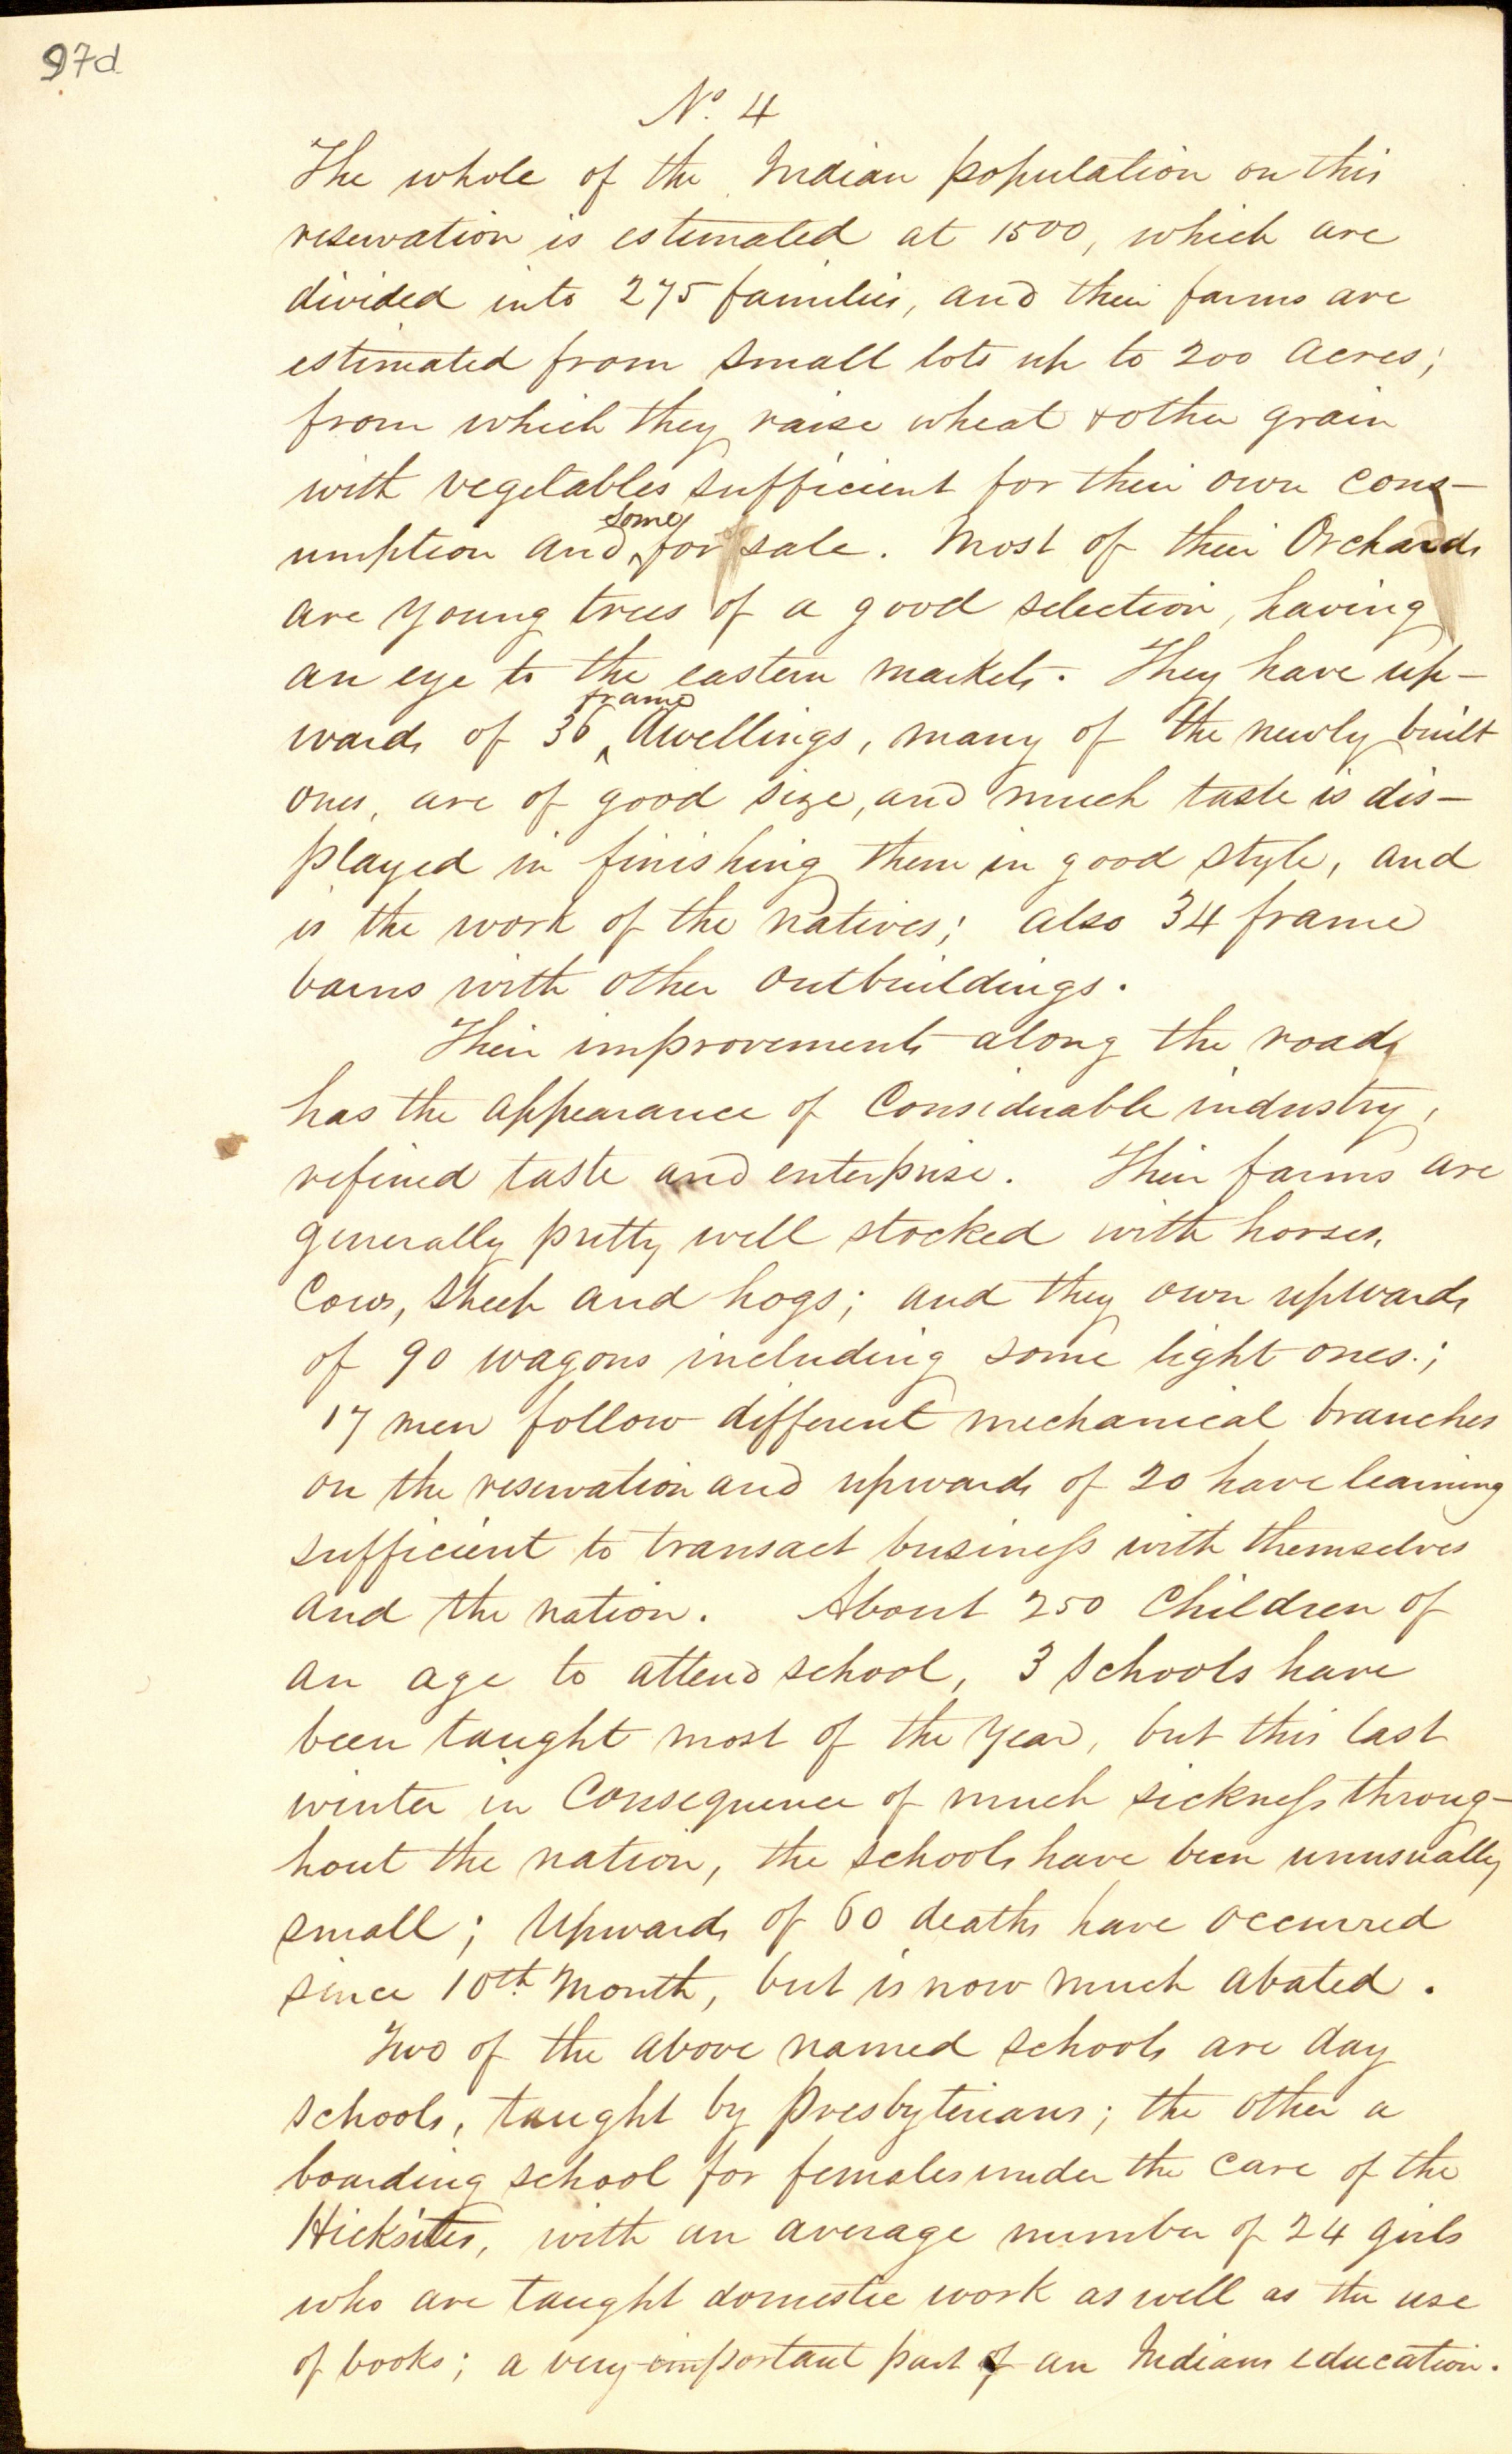 97d
No. 4
The whole of the Indian population on this
reservation is estimated at 1500, which are
divided into 275 families, and their farms are
estimated from small lots up to 200 acres;
from which they raise wheat & other grain
with vegetables sufficient for their own cons-
some
umption and ^ for sale. Most of their Orchards
are young trees of a good selection, having
an eye to the eastern markets. They have up-
frame
wards of 36 ^ dwellings, many of the newly built
ones, are of good size, and much taste is dis-
played in finishing them in good style, and
is the work of the natives; also 34 frame
barns with other outbuildings.
Their improvements along the roads
has the appearance of Considerable industry,
refined taste and enterprise. Their farms are
generally pretty well stocked with horses,
Cows, sheep and hogs; and they own upwards
of 90 wagons including some light ones.;
17 men follow different mechanical branches
on the reservation and upwards of 20 have learning
sufficient to transact business with themselves
and the nation. About 250 Children of
an age to attend school, 3 schools have
been taught most of the year, but this last
winter in Consequence of much sickness throug-
hout the nation, the schools have been unusually
small; Upwards of 60 deaths have occurred
since 10th Month, but is now much abated.
Two of the above named schools are day
schools, taught by Presbyterians; the other a
boarding school for females under the care of the
Hicksites, with an average number of 24 girls
who are taught domestic work as well as the use
of books; a very important part of an Indians education.